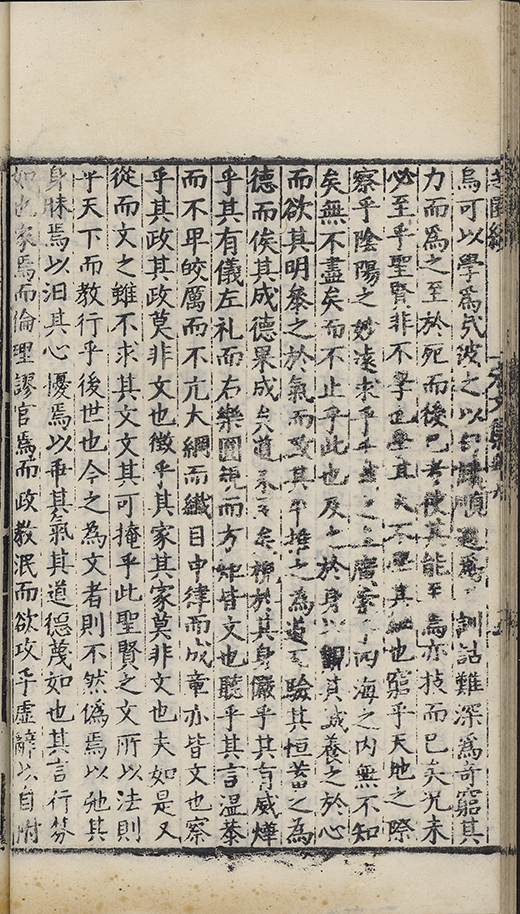 芝園續
烏可以學爲哉彼之以句讀順適爲工訓詁難深爲奇窮其
力而爲之至於死而後已者使其能至焉亦技而已矣況未
必至乎聖賢非不學也學其大不學其細也窮乎天地之際
察乎陰陽之妙遠求乎千載之上廣索乎四海之内無不知
矣無不盡矣而不止乎此也反之於身以觀其誠養之於心
而欲其明參之於氣而致其平推之為道而驗其恒蓄之為
德而俟其成德果成矣道果至矣視於其身儼乎其有威煒
乎其有儀左礼而右樂圓規而方矩皆文也聽乎其言温恭
而不卑皎厲而不亢大綱而纖目中律而成章亦皆文也察
乎其政其政莫非文也徵乎其家其家莫非文也夫如是又
從而文之雖不求其文文其可掩乎此聖賢之文所以法則
乎天下而教行乎後世也今之為文者則不然僞焉以弛其
身昧焉以汨其心擾焉以乖其氣其道德蔑如也其言行棼
如也家焉而倫理謬官焉而政教泯而欲攻乎虛辭以自附